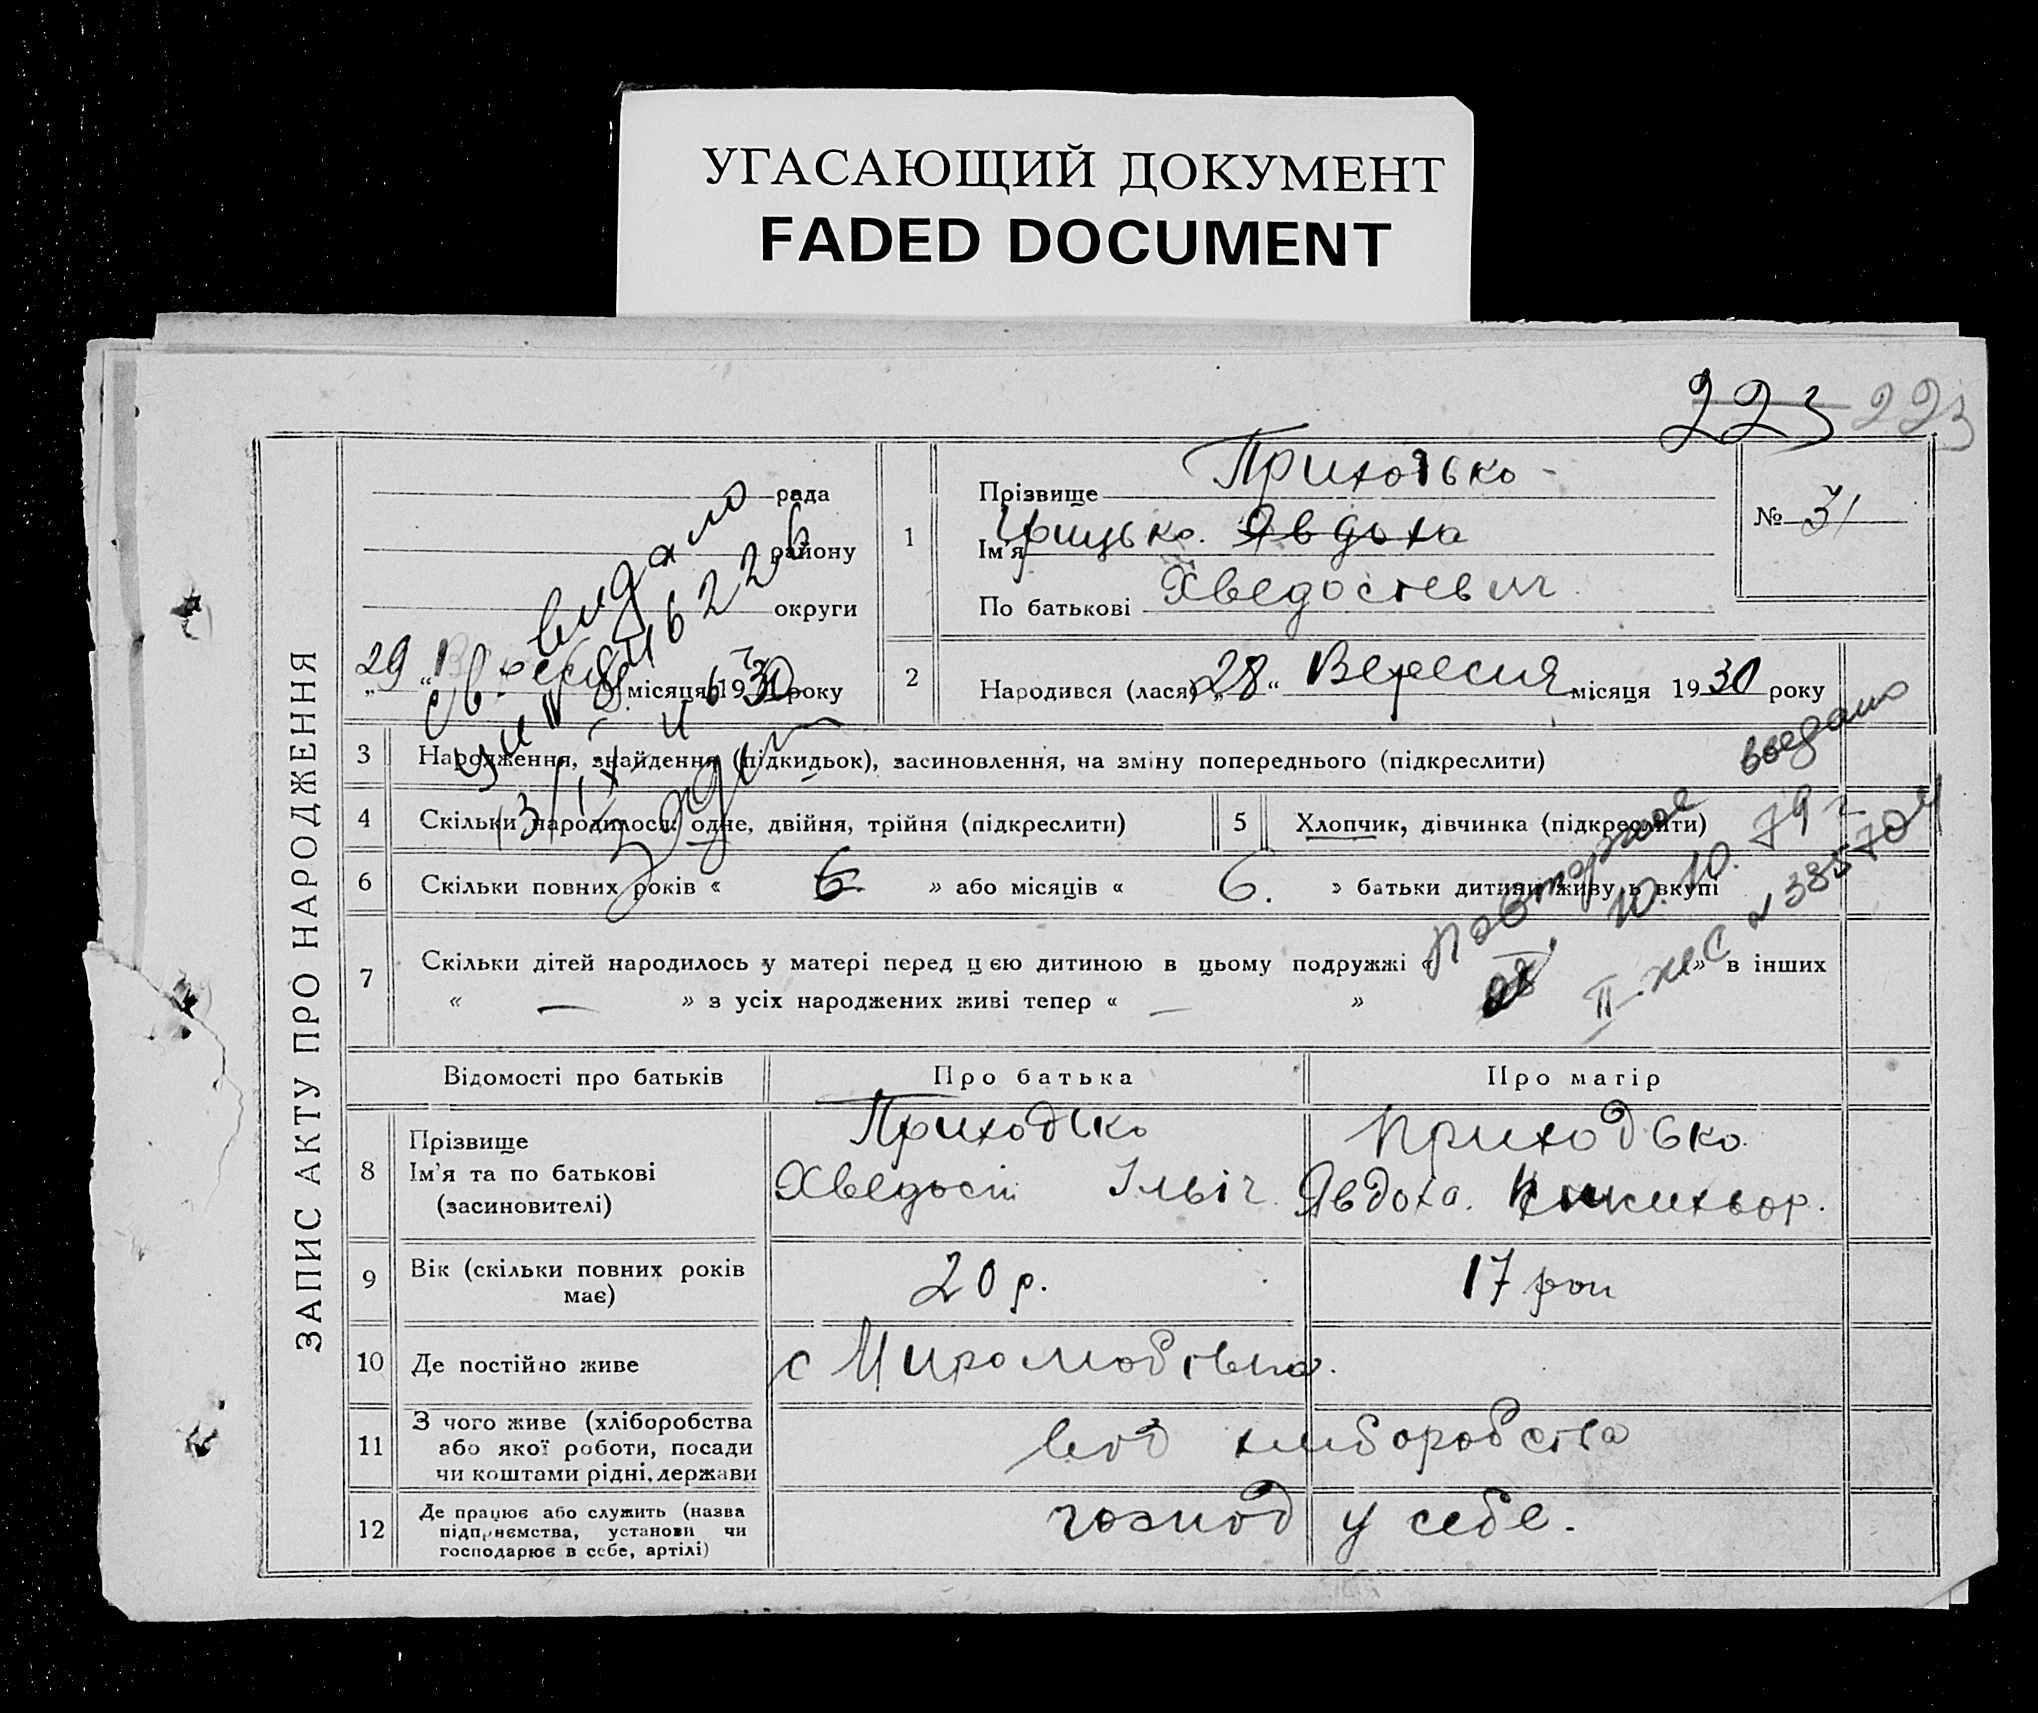 УГАСАЮЩИЙ ДОКУМЕНТ
FADED DOCUMENT
223 223
ЗАПИС АКТУ ПРО НАРОДЖЕННЯ
рада
району
округи
„29“ місяця 1930 року
видано
1
Прізвище Приходько
Ім'я Грицько. Явдоха
По батькові Хведостевич
№ 31
2 Народився (лася) „28“ Вересня місяця 1930 року
3 Народження, знайдення (підкидьок), засиновлення, на зміну попереднього (підкреслити)
4 Скільки народилося: одне, двійня, трійня (підкреслити)
5 Хлопчик, дівчинка (підкреслити)
6 Скільки повних років « 6 » або місяців « 6. » батьки дитини живуть вкупі
7 Скільки дітей народилось у матері перед цією дитиною в цьому подружжі « » в інших
« — » з усіх народжених живі тепер « — »
повторное выдано
10.10.79 г
Відомості про батьків
Про батька
Про матір
8 Прізвище
Ім'я та по батькові
(засиновителі)
Приходько
Хведост Ільіч
Приходько
Явдоха.
9 Вік (скільки повних років
має)
20 р.
17 рок
10 Де постійно живе
с
11 З чого живе (хліборобства
або якої роботи, посади
чи коштами рідні, держави
вод хліборобства
12 Де працює або служить (назва
підприємства, установи чи
господарює в себе, артілі)
господ у себе.